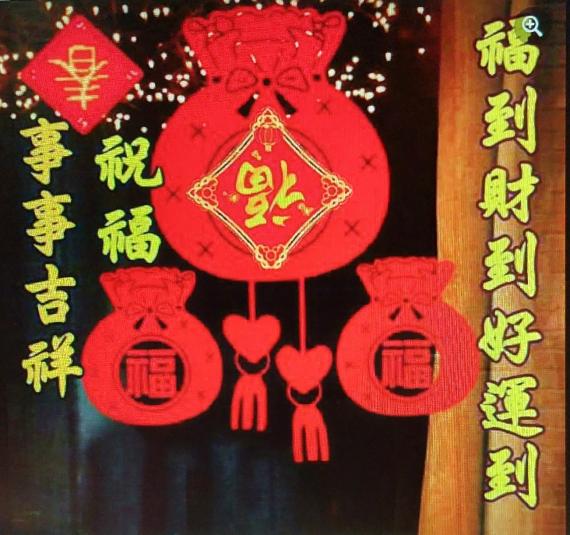 福到財到好運到
祝福
事事吉祥
春
福
福
福